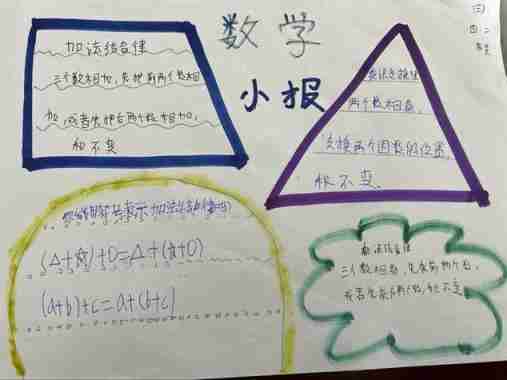 数学
小报
(三)
四 二
加法结合律
三个数相加,先把前两个数相
加,或者先把后两个数相加,
和不变
乘法交换律
两个数相乘,
交换两个因数的位置,
积不变.
你能用符号表示加法结合律吗?
(△+☆)+○=△+(☆+○)
(a+b)+c=a+(b+c)
乘法结合律
三个数相乘,先乘前两个数,
或者先乘后两个数,积不变